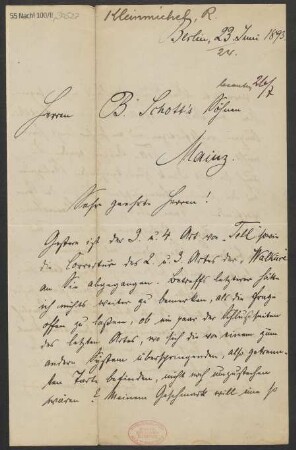 55 Nachl 100/B
Kleinmichel, R
Berlin, 23 Juni 1893
26/7
Herren
B. Schott's Söhnen
Mainz.
Sehr geehrte Herren!
Gestern ist der 3. u 4. Act von Tell sowie
die Correctur des 2. u 3. Actes der Walküre
an Sie abgegangen. Betreffs letzterer hätte
ich nichts weiter zu bemerken, als die Frage
offen zu laßen, ob ein paar der Schlußseiten
des letzten Actes, wo sich die von einem zum
andern System überspringenden, also getrenn-
ten Takte befinden, nicht noch umzustechen
wären? Meinem Geschmack will eine so